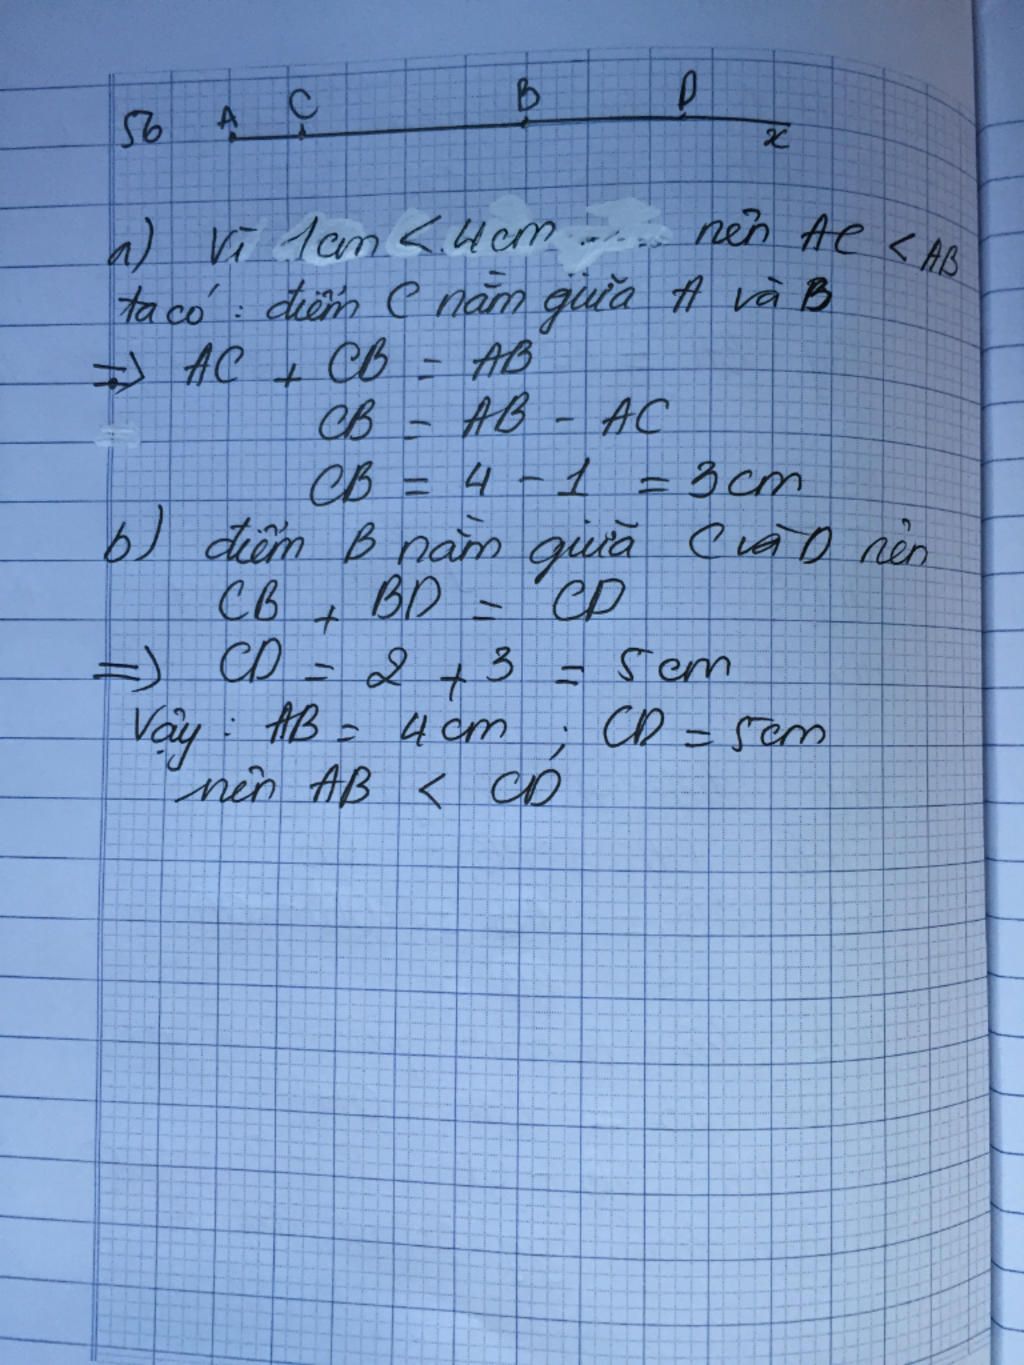 56 A C B D x
a) Vì 1cm < 4cm nên AC < AB
ta có : điểm C nằm giữa A và B
=> AC + CB = AB
CB = AB - AC
CB = 4 - 1 = 3cm
b) điểm B nằm giữa C và D nên
CB + BD = CD
=> CD = 2 + 3 = 5cm
Vậy : AB = 4cm ; CD = 5cm
nên AB < CD